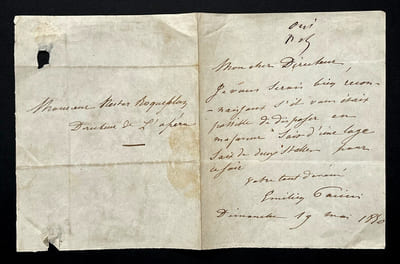 Monsieur Nestor Roqueplan
Directeur de L'opéra
oui
Mon cher Directeur,
Je vous serais bien recon-
naissant s'il vous était
possible de disposer en
ma faveur Soit d'une loge
Soit de deux Stalles pour
ce soir
votre tout dévoué
Dimanche 19 mai 1850